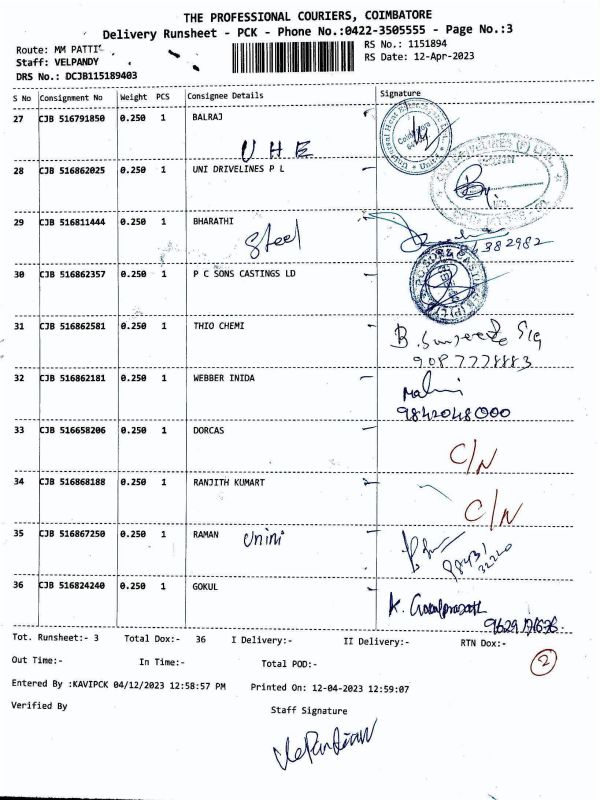 THE PROFESSIONAL COURIERS, COIMBATORE
Delivery Runsheet - PCK - Phone No.:0422-3505555 - Page No.:3
Route: MM PATTI
RS No.: 1151894
Staff: VELPANDY
RS Date: 12-Apr-2023
DRS No.: DCJB115189403
S No Consignment No Weight PCS Consignee Details Signature
27 CJB 516791850 0.250 1 BALRAJ
U H E
28 CJB 516862025 0.250 1 UNI DRIVELINES P L
29 CJB 516811444 0.250 1 BHARATHI
Steel
30 CJB 516862357 0.250 1 P C SONS CASTINGS LD
31 CJB 516862581 0.250 1 THIO CHEMI
9087778883
32 CJB 516862181 0.250 1 WEBBER INIDA
9842048000
33 CJB 516658206 0.250 1 DORCAS
C/N
34 CJB 516868188 0.250 1 RANJITH KUMART
C/N
35 CJB 516867250 0.250 1 RAMAN
36 CJB 516824240 0.250 1 GOKUL
Tot. Runsheet:- 3 Total Dox:- 36 I Delivery:- II Delivery:- RTN Dox:-
Out Time:- In Time:- Total POD:- 2
Entered By :KAVIPCK 04/12/2023 12:58:57 PM Printed On: 12-04-2023 12:59:07
Verified By Staff Signature